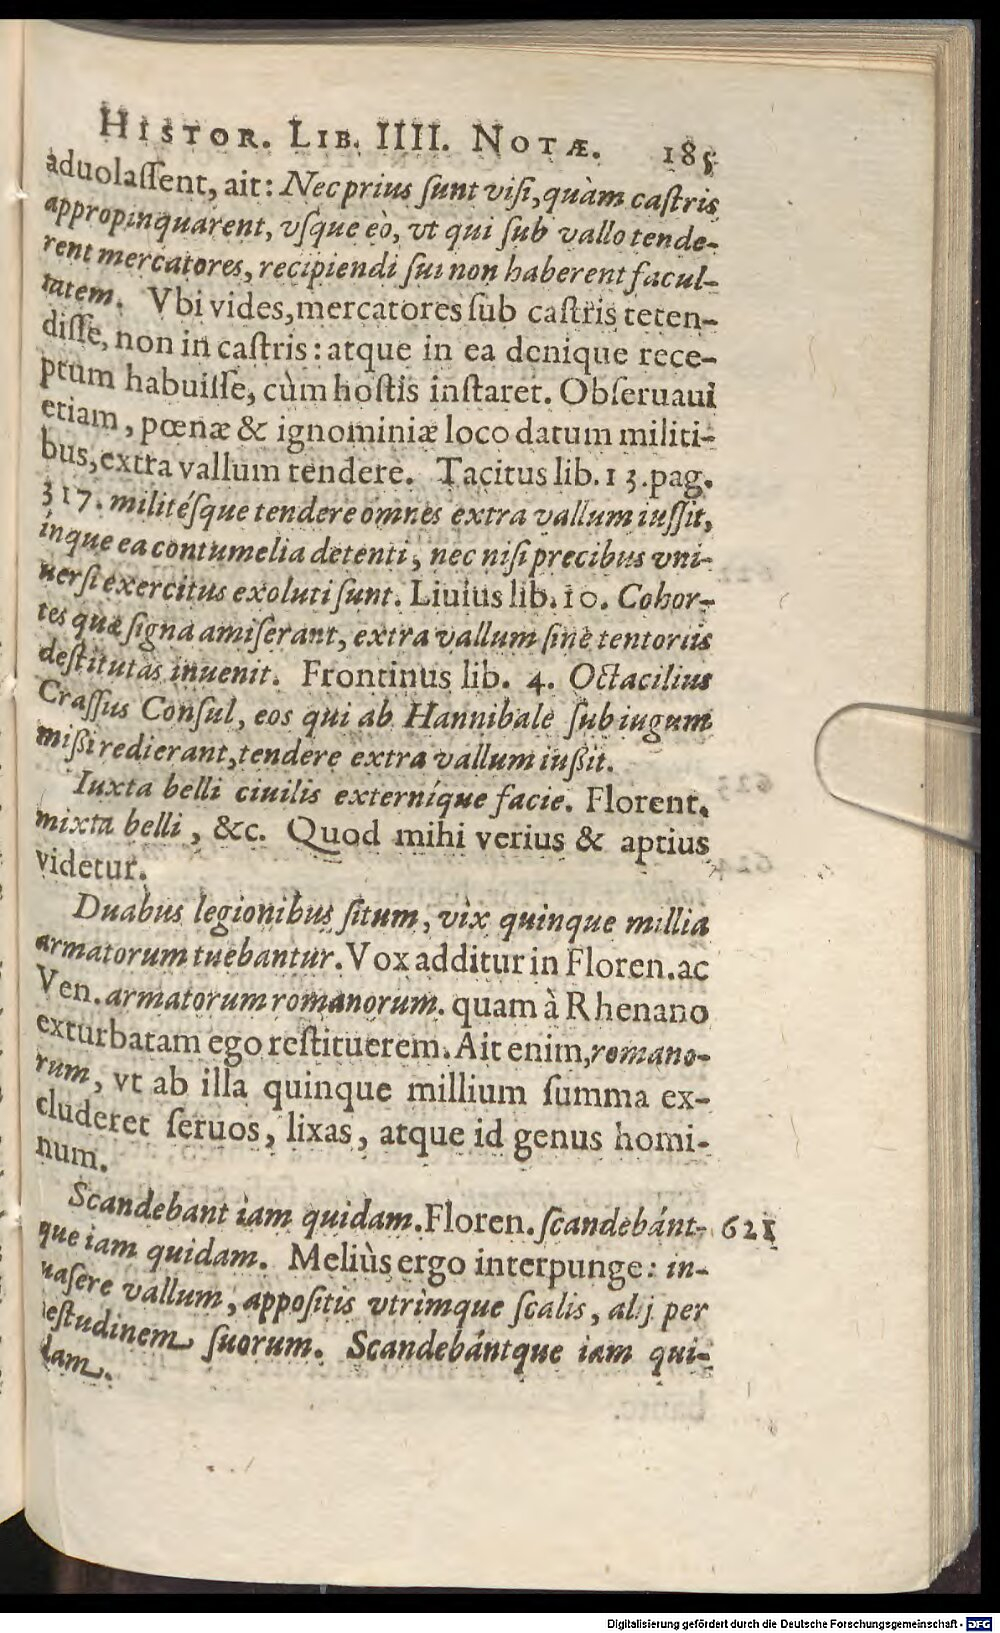 HISTOR. LIB. IIII. NOTÆ. 185
aduolaſſent, ait: Nec prius ſunt viſi, quàm caſtris
appropinquarent, vſque eò, vt qui ſub vallo tende-
rent mercatores, recipiendi ſui non haberent facul-
tatem. Vbi vides, mercatores ſub caſtris teten-
diſſe, non in caſtris: atque in ea denique rece-
ptum habuiſſe, cùm hoſtis inſtaret. Obſeruaui
etiam, pœnæ & ignominiæ loco datum militi-
bus, extra vallum tendere. Tacitus lib. 13. pag.
317. militéſque tendere omnes extra vallum iuſſit,
inque ea contumelia detenti, nec niſi precibus vni-
uerſi exercitus exoluti ſunt. Liuius lib. 10. Cohor-
tes quæ ſigna amiſerant, extra vallum ſine tentoriis
deſtitutas inuenit. Frontinus lib. 4. Octacilius
Craſſus Conſul, eos qui ab Hannibale ſub iugum
mißi redierant, tendere extra vallum iußit.
Iuxta belli ciuilis externíque facie. Florent.
mixta belli, &c. Quod mihi verius & aptius
videtur.
Duabus legionibus ſitum, vix quinque millia
armatorum tuebantur. Vox additur in Floren. ac
Ven. armatorum romanorum. quam à Rhenano
exturbatam ego reſtituerem. Ait enim, romano-
rum, vt ab illa quinque millium ſumma ex-
cluderet ſeruos, lixas, atque id genus homi-
num.
Scandebant iam quidam. Floren. ſcandebánt- 621
que iam quidam. Meliùs ergo interpunge: in-
uaſere vallum, appoſitis vtrìmque ſcalis, alij per
teſtudinem ſuorum. Scandebántque iam qui-
dam.
Digitalisierung gefördert durch die Deutsche Forschungsgemeinschaft - DFG